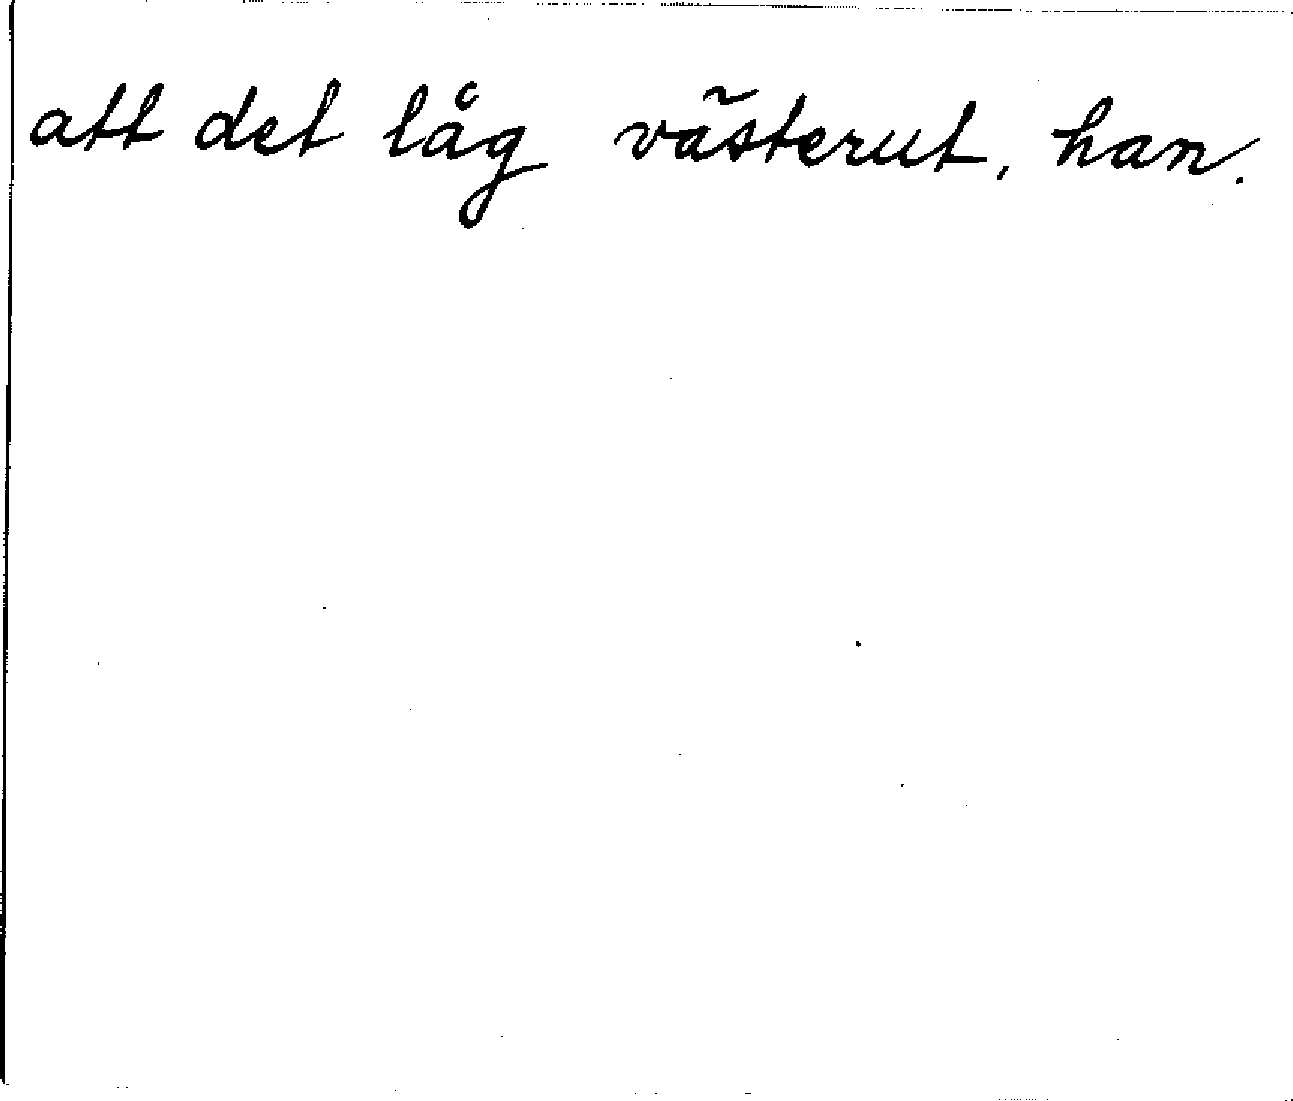 att det låg västerut, han.